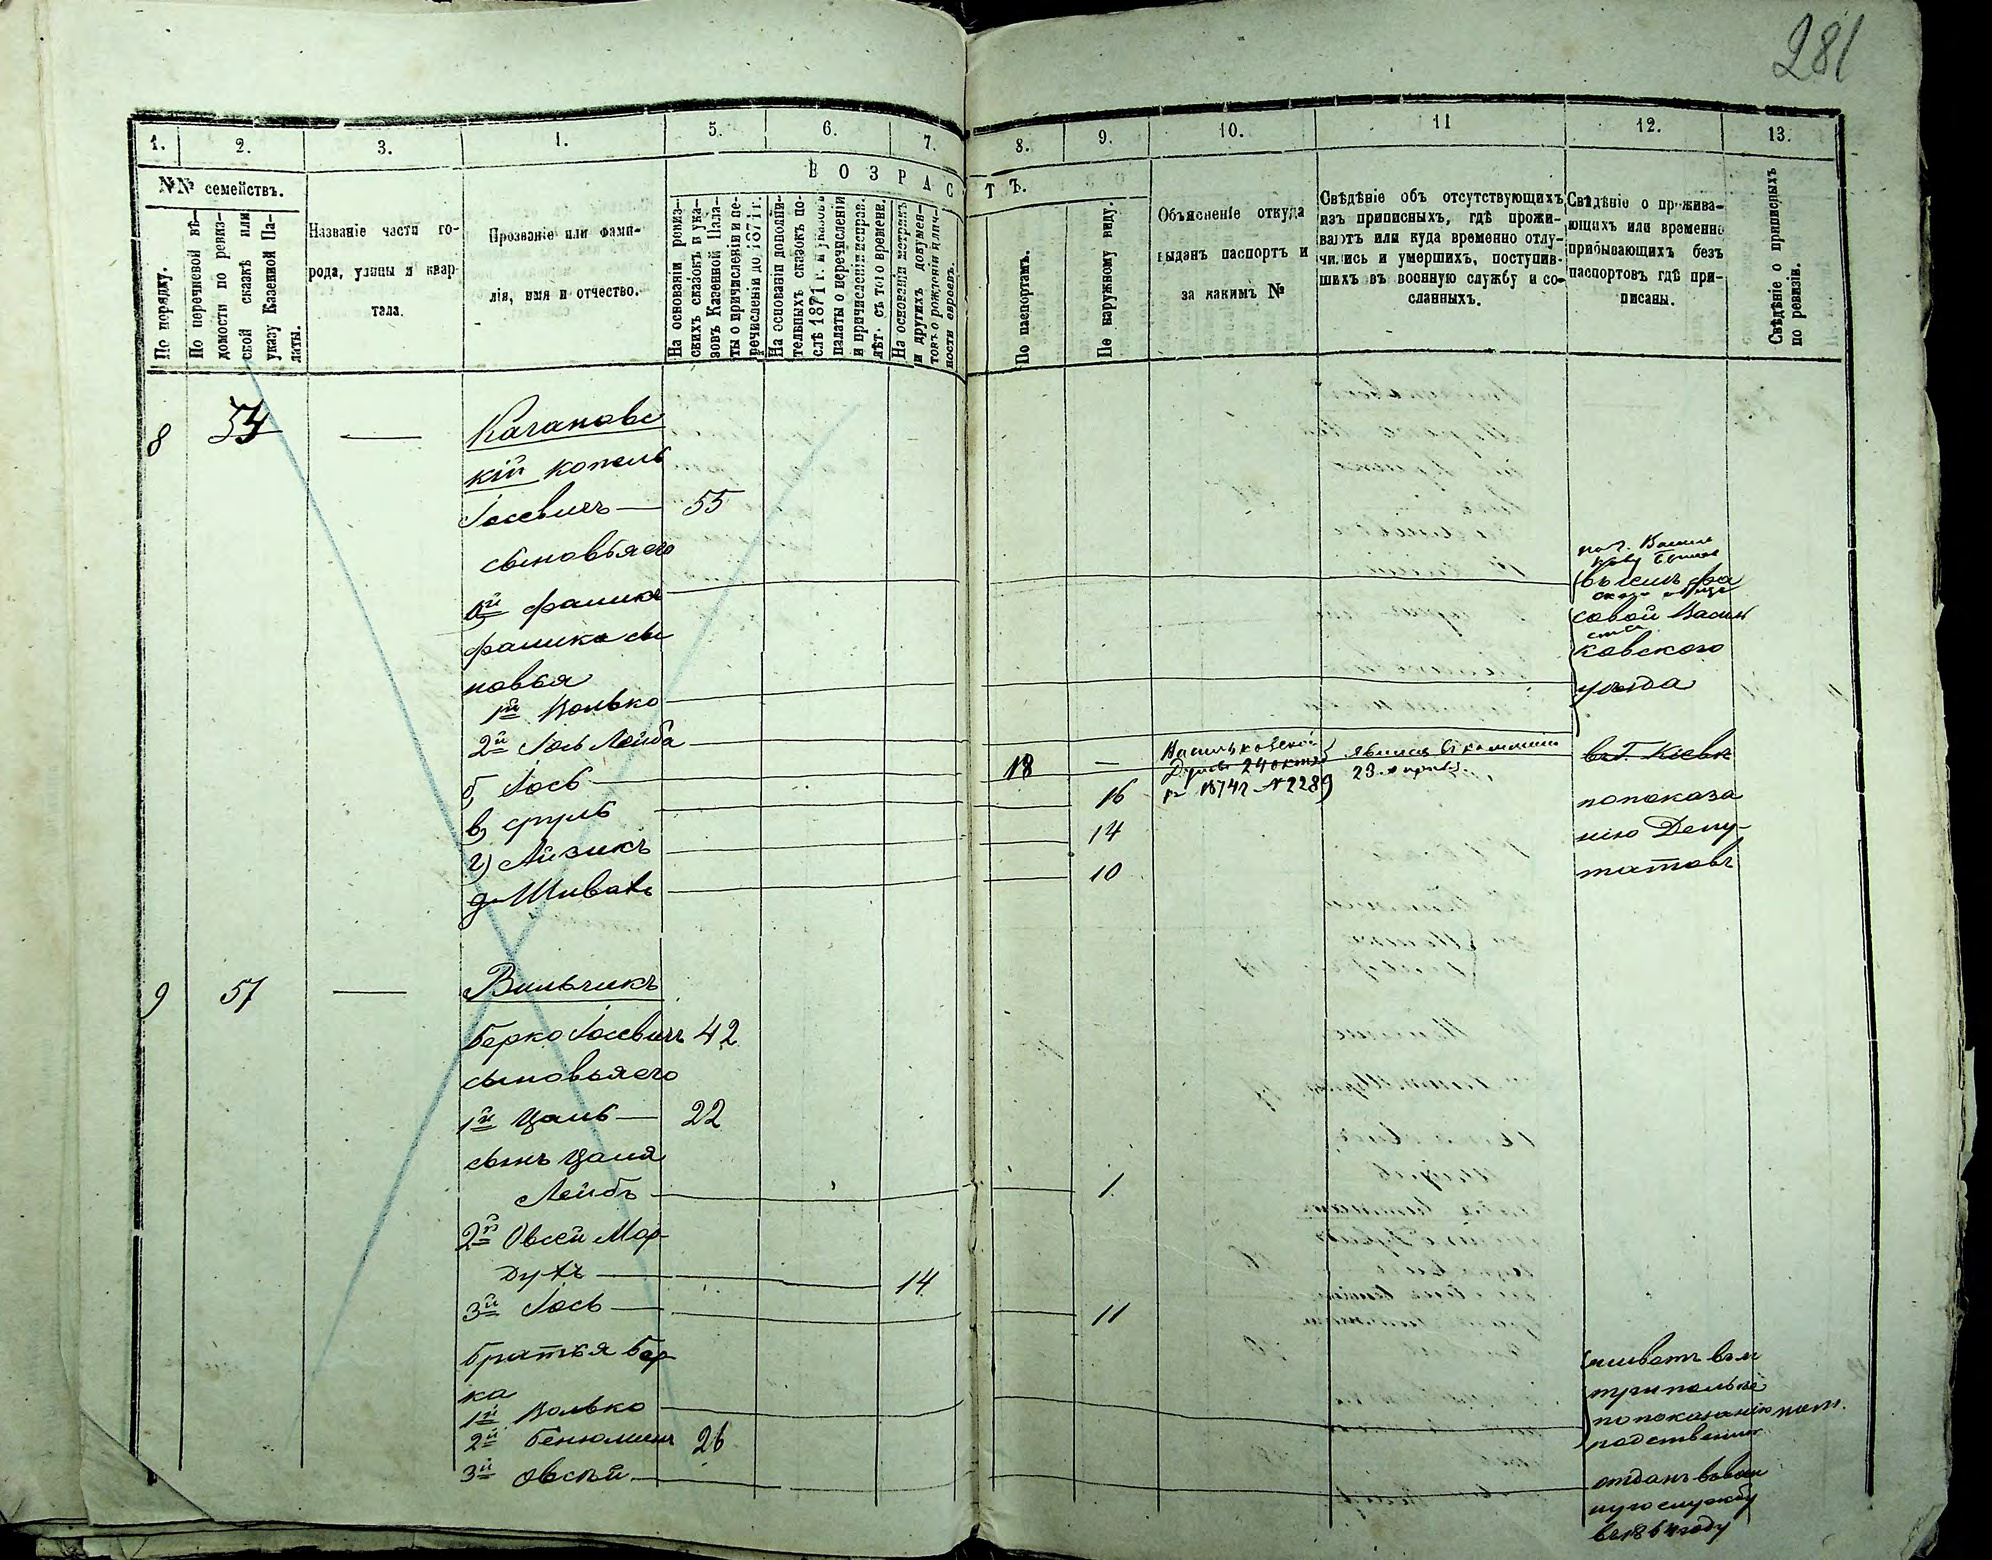 281
1.
2.
3.
1.
5.
6.
7.
8.
9.
10.
11
12.
13.
№№ семействъ.
По порядку.
По перечневой вѣ-
домости по ревиз-
ской сказкѣ или
указу Казенной Па-
латы.
Названіе части го-
рода, улицы и квар-
тала.
Прозваніе или фами-
лія, имя и отчество.
ВОЗРАСТЪ.
На основаніи ревиз-
скихъ сказокъ и ука-
зовъ Казенной Пала-
ты о причисленіи и пе-
речисленіи до 1871 г.
На основаніи дополни-
тельныхъ сказокъ по-
слѣ 1871 г. и указовъ
палаты о перечисленіи
и причисленіи исправ.
лѣт. съ того времени.
На основаніи метрикъ
и другихъ докумен-
товъ о рожденіи и лич-
ности евреевъ.
По паспортамъ.
По наружному виду.
Объясненіе откуда
выданъ паспортъ и
за какимъ №
Свѣдѣніе объ отсутствующихъ
изъ приписныхъ, гдѣ прожи-
ваютъ или куда временно отлу-
чились и умершихъ, поступив-
шихъ въ военную службу и со-
сланныхъ.
Свѣдѣніе о прожива-
ющихъ или временно
прибывающихъ безъ
паспортовъ гдѣ при-
писаны.
Свѣдѣніе о приписныхъ
по ревизіи.
8
54
Кагановс
кій Копель
Іосевичъ 55
сыновья его
фамика сы
новья
1й Волько
2й Іось Лейба
б, Іось 18
в, сруль 16
г) Айзикъ 14
10
совой Василь
ковскаго
уѣзда
Васильковской
Думы 24 октяб
1874 г №2289
23
въ г. Кіевѣ
по показа
нію Депу-
татовъ
9
57
Вильчикъ
Берко Іосевичъ 42
сыновья его
1й Цаль 22
сынъ Цаля
Лейбъ 1
2й Овсей Мор-
духъ 14
3й Іось 11
братья Бер
ка
1й Волько
2й Бенюминъ 26
3й Овсѣй
живетъ въ м
триполье
по показанію
родственни
отданъ въ воен
ную службу
въ 1864 году